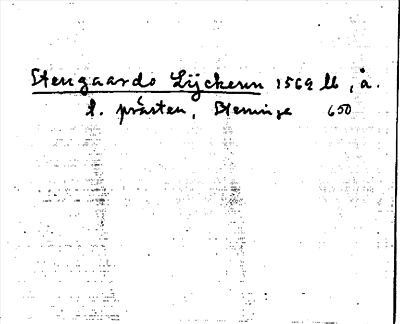 Stengaards Lyckern 1569 lb, å.
t. prästen, Steninge 650